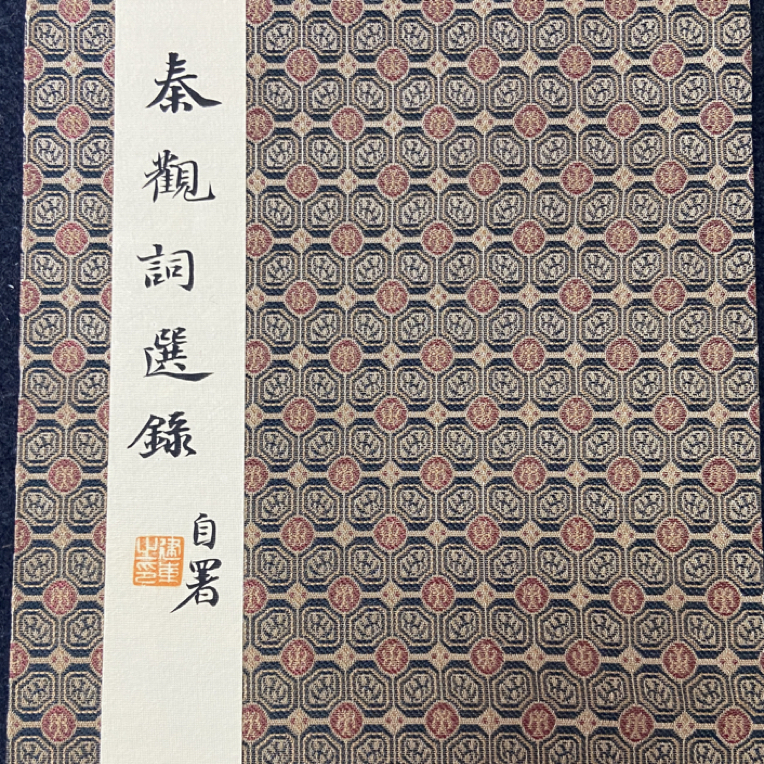 秦觀詞選錄
自署